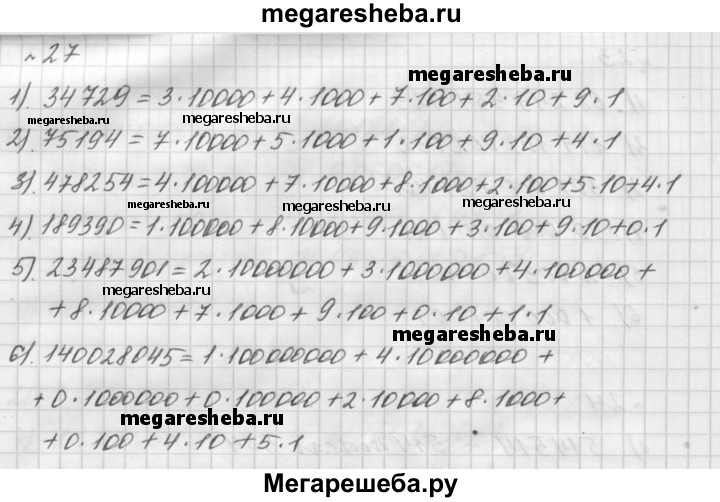 megaresheba.ru
№27
1). 34729 = 3·10000 + 4·1000 + 7·100 + 2·10 + 9·1
megaresheba.ru
megaresheba.ru
megaresheba.ru
2). 75194 = 7·10000 + 5·1000 + 1·100 + 9·10 + 4·1
3). 478254 = 4·100000 + 7·10000 + 8·1000 + 2·100 + 5·10 + 4·1
megaresheba.ru
megaresheba.ru
megaresheba.ru
4). 189390 = 1·100000 + 8·10000 + 9·1000 + 3·100 + 9·10 + 0·1
5). 23487901 = 2·10000000 + 3·1000000 + 4·100000 +
megaresheba.ru
+ 8·10000 + 7·1000 + 9·100 + 0·10 + 1·1
megaresheba.ru
6). 140028045 = 1·100000000 + 4·10000000 +
+ 0·1000000 + 0·100000 + 2·10000 + 8·1000 +
megaresheba.ru
+ 0·100 + 4·10 + 5·1
Мегарешеба.ру